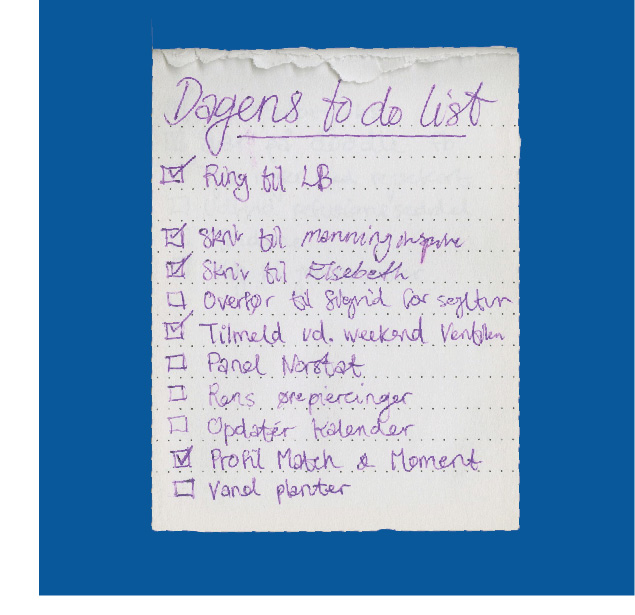 Dagens to do list
Ring til LB
Skriv til
Skriv til Elsebeth
Overfør til Sigrid for segltur
Tilmeld vd. weekend Ventilen
Panel Norstat
Rens ørepiercinger
Opdatér kalender
Profil Match & Moment
Vand planter